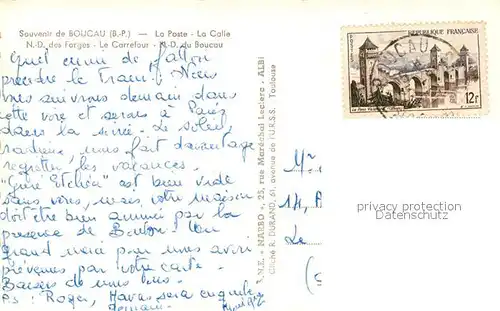 Souvenir de BOUCAU (B.-P.) — La Poste - La Calle
N.-D. des Forges - Le Carrefour - N.-D. du Boucau
Quel ennui de falloir
prendre le train ! Nous
vous suivrons demain dans
cette voie et serons à Paris
dans la soirée. Le soleil,
radieux, nous fait davantage
regretter les vacances.
" est bien vide
sans vous, mais votre maison
doit être bien animée par la
présence de Un
grand merci pour nous avoir
prévenus par votre carte.
Baisers de nous tous.
P.S : Roger, sera
demain.
S.N.E. « NARBO », 25, rue Maréchal Leclerc - ALBI
Cliché R. DURAND, 51, avenue de l'U.R.S.S. Toulouse
RÉPUBLIQUE FRANÇAISE
POSTES
12F
BOUCAU
M
14,
Le
privacy protection
Datenschutz